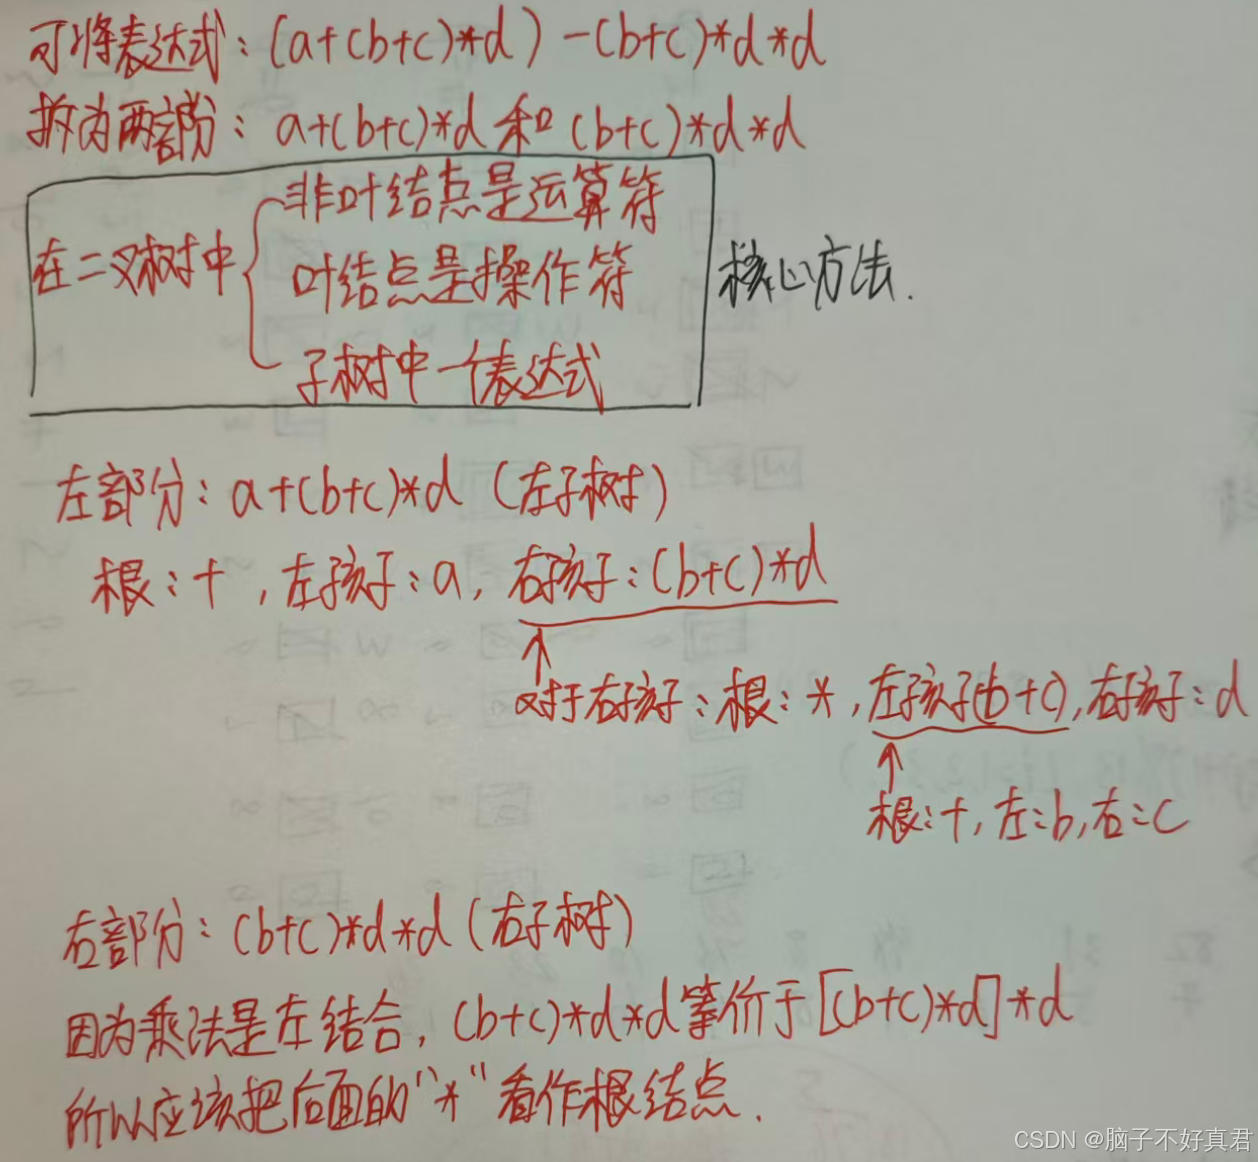 可将表达式：(a+(b+c)*d)-(b+c)*d*d
拆为两部份：a+(b+c)*d和(b+c)*d*d
在二叉树中
非叶结点是运算符
叶结点是操作符
子树中一个表达式
核心方法.
左部分：a+(b+c)*d（左子树）
根：+，左孩子：a，右孩子：(b+c)*d
对于右孩子：根：*，左孩子(b+c)，右孩子：d
根：+，左：b，右：c
右部分：(b+c)*d*d（右子树）
因为乘法是左结合，(b+c)*d*d等价于[(b+c)*d]*d
所以应该把后面的"*"看作根结点.
CSDN @脑子不好真君